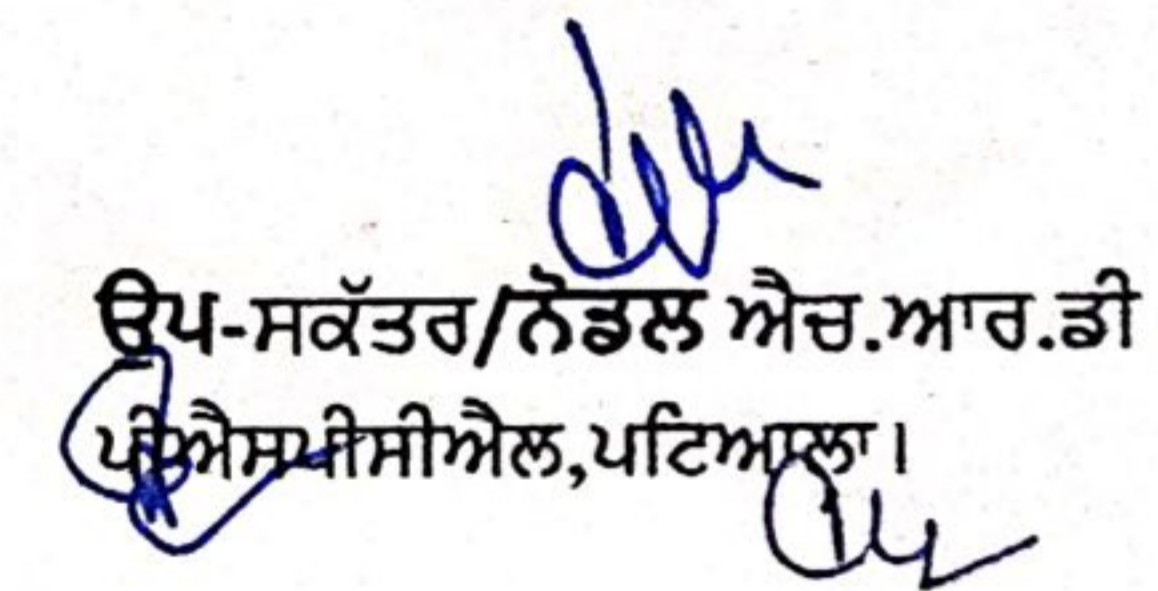 ਉਪ-ਸਕੱਤਰ/ਨੋਡਲ ਐਚ.ਆਰ.ਡੀ
ਪੀਐਸਪੀਸੀਐਲ,ਪਟਿਆਲਾ।